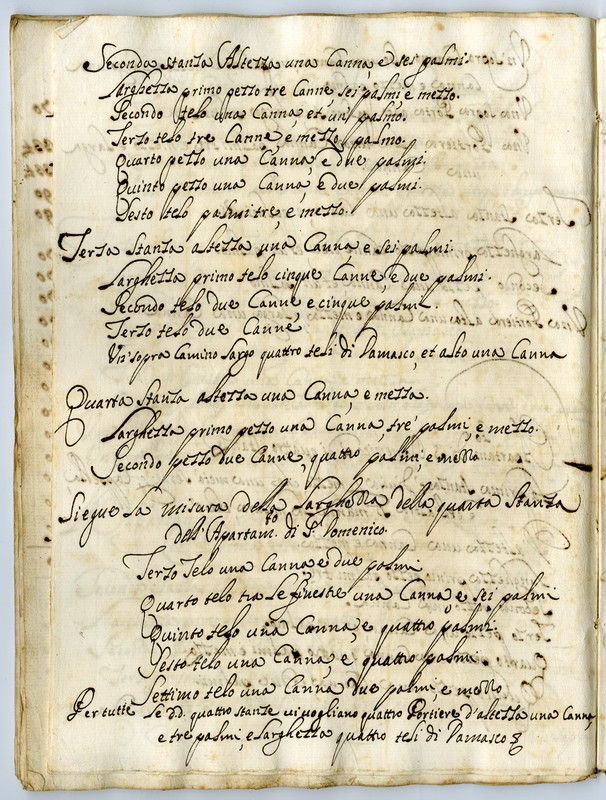 Seconda stanza Altezza una Canna, e sei palmi.
Larghezza primo pezzo tre Canne, sei palmi, e mezzo.
Secondo telo una Canna, et un' palmo.
Terzo telo tre Canne, e mezzo palmo.
Quarto pezzo una Canna, e due palmi.
Quinto pezzo una Canna, e due palmi.
Sesto telo palmi tre, e mezzo.
Terza Stanza altezza una Canna, e sei palmi.
Larghezza primo telo cinque Canne, e due palmi.
Secondo telo due Canne, e cinque palmi.
Terzo telo due Canne
Un' sopra Camino Largo quattro teli di Damasco, et alto una Canna
Quarta Stanza altezza una Canna, e mezza.
Larghezza primo pezzo una Canna, tre palmi, e mezzo.
Secondo pezzo due Canne, quattro palmi e mezzo
Siegue La misura della Larghezza della quarta Stanza
dell' Apartam.to di S. Domenico.
Terzo Telo una Canna, e due palmi
Quarto telo tra Le finestre una Canna, e sei palmi
Quinto telo una Canna, e quattro palmi.
Sesto telo una Canna, e quattro palmi
Settimo telo una Canna, due palmi, e mezzo
Per tutte Le d.d. quattro stanze vi vogliano quattro Portiere d'altezza una Canna,
e tre palmi, e Larghezza quattro teli di Damasco